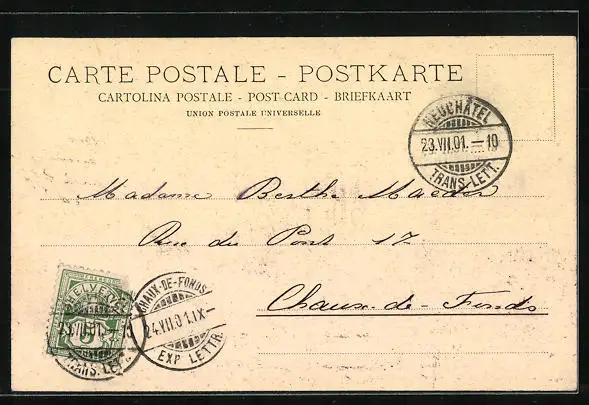 CARTE POSTALE - POSTKARTE
CARTOLINA POSTALE - POST CARD - BRIEFKAART
UNION POSTALE UNIVERSELLE
NEUCHÂTEL
23.VII.01.-10
TRANS-LETT.
Madame Berthe Maeder
Rue du Pont 17
Chaux-de-Fonds
HELVETIA
5
23.VII.01.
TRANS-LETT.
CHAUX-DE-FONDS
24.VII.01.IX-
EXP. LETTR.